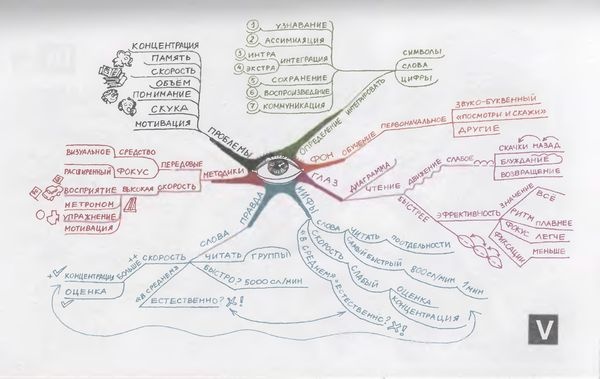 КОНЦЕНТРАЦИЯ
ПАМЯТЬ
СКОРОСТЬ
ОБЪЕМ
ПОНИМАНИЕ
СКУКА
МОТИВАЦИЯ
ПРОБЛЕМЫ
1 УЗНАВАНИЕ
2 АССИМИЛЯЦИЯ
3 ИНТРА
4 ЭКСТРА
ИНТЕГРАЦИЯ
5 СОХРАНЕНИЕ
6 ВОСПРОИЗВЕДЕНИЕ
7 КОММУНИКАЦИЯ
ОПРЕДЕЛЕНИЕ
ИНТЕГРИРОВАТЬ
СИМВОЛЫ
СЛОВА
ЦИФРЫ
ФОН
ОБУЧЕНИЕ
ПЕРВОНАЧАЛЬНОЕ
ЗВУКО-БУКВЕННЫЙ
"ПОСМОТРИ И СКАЖИ"
ДРУГИЕ
ГЛАЗ
ДИАГРАММА
ЧТЕНИЕ
ДВИЖЕНИЕ
СЛАБОЕ
СКАЧКИ НАЗАД
БЛУЖДАНИЕ
ВОЗВРАЩЕНИЕ
БЫСТРЕЕ
ЭФФЕКТИВНОСТЬ
ЗНАЧЕНИЕ
ВСЁ
РИТМ
ПЛАВНЕЕ
ФОКУС
ЛЕГЧЕ
ФИКСАЦИИ
МЕНЬШЕ
МЕТОДИКИ
ПЕРЕДОВЫЕ
ВИЗУАЛЬНОЕ СРЕДСТВО
РАСШИРЕННЫЙ ФОКУС
ВОСПРИЯТИЕ ВЫСОКАЯ СКОРОСТЬ
МЕТРОНОМ
УПРАЖНЕНИЕ
МОТИВАЦИЯ
ПРАВДА
СЛОВА
ЧИТАТЬ ГРУППЫ
СКОРОСТЬ
БЫСТРО? 5000 СЛ/МИН
БОЛЬШЕ
КОНЦЕНТРАЦИИ
ОЦЕНКА
"В СРЕДНЕМ"
ЕСТЕСТВЕННО?
МИФЫ
СЛОВА
ЧИТАТЬ
ПООТДЕЛЬНОСТИ
СКОРОСТЬ
САМЫЙ БЫСТРЫЙ
800 СЛ/МИН
1 МИН
СЛАБЫЙ
ОЦЕНКА
КОНЦЕНТРАЦИЯ
"В СРЕДНЕМ"
ЕСТЕСТВЕННО?
V